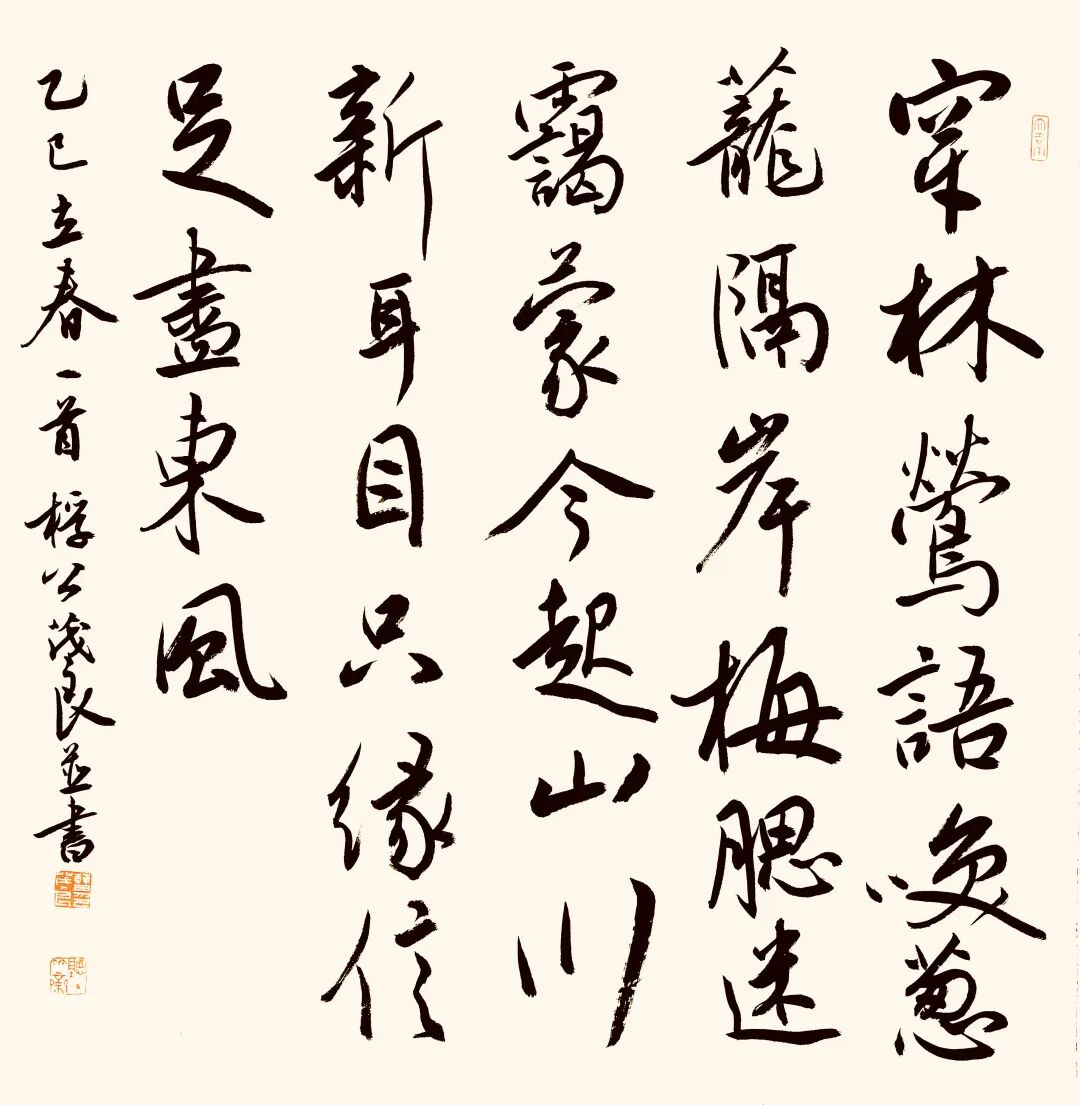 穿林鶯語喚蔥
蘢隔岸梅腮迷
靄蒙今起山川
新耳目只緣信
足盡東風
乙巳立春一首桴公茂良並書